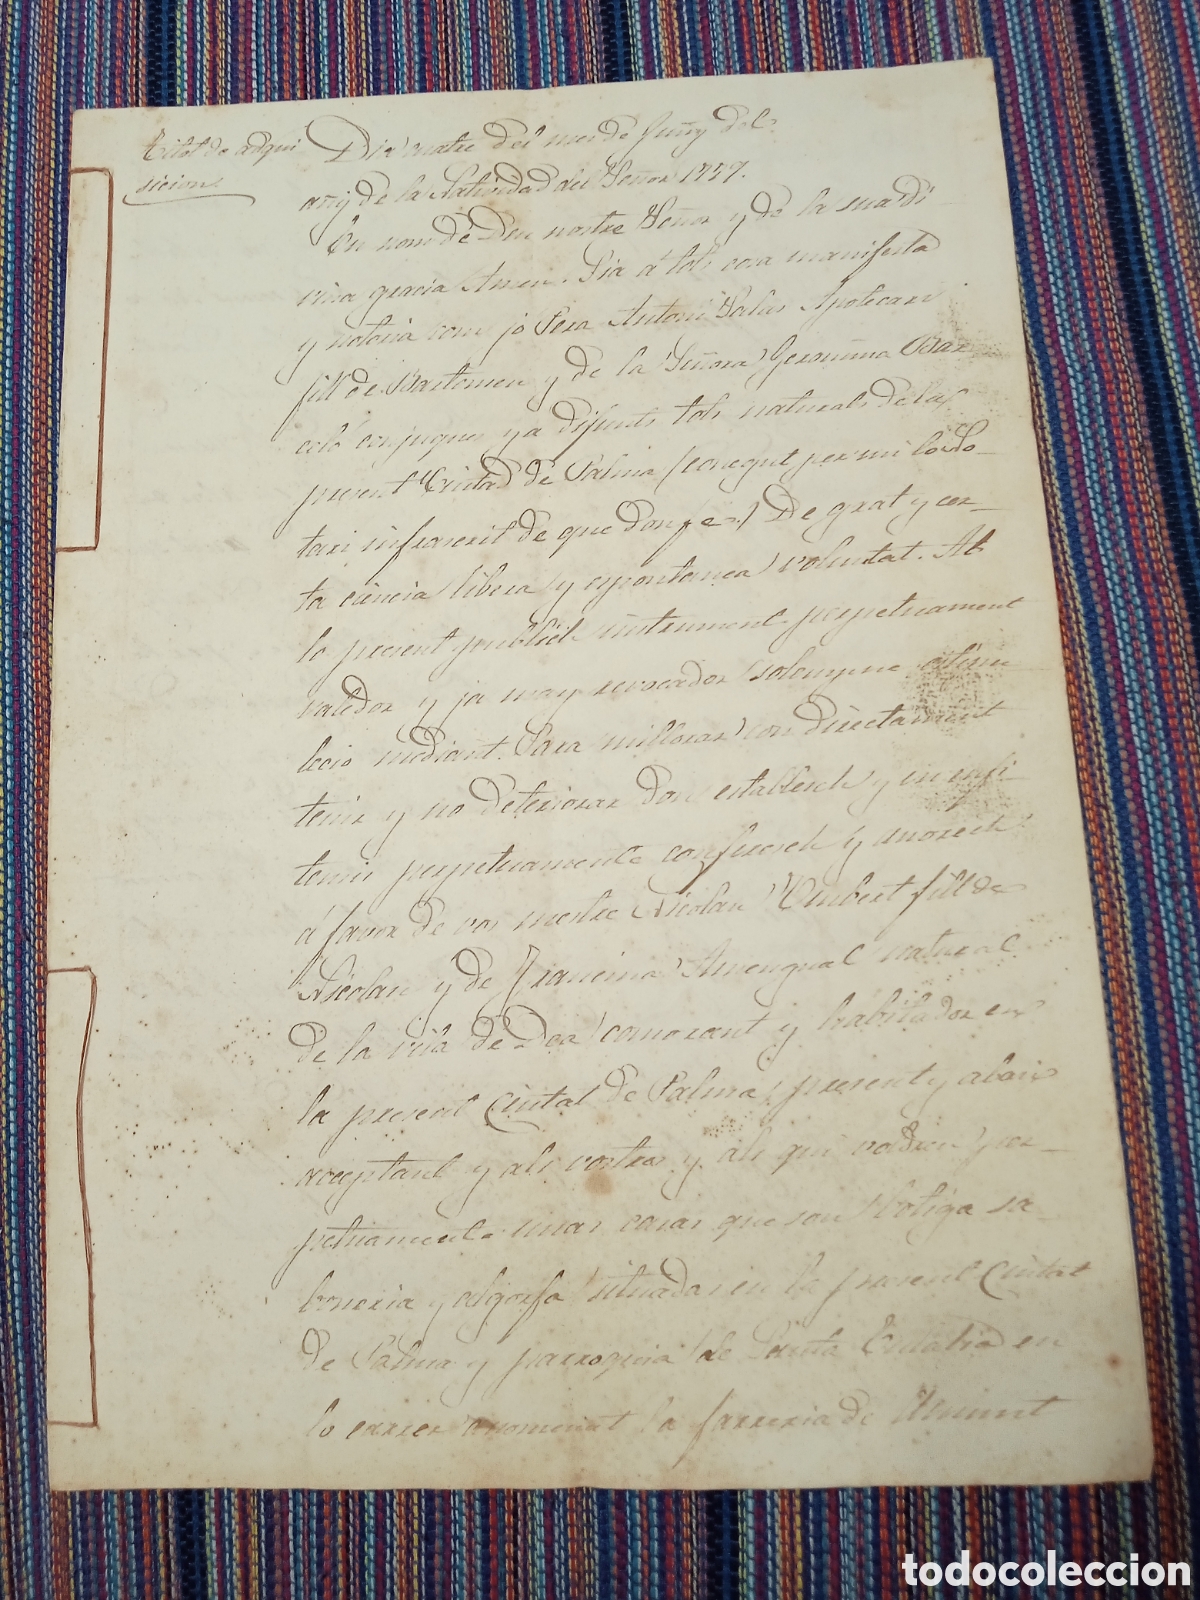 Titol de adqui
sicions
Dia cuatre del mes de Juñy del
añy de la Natividad del Señor 1757.
En nom de Deu nostre Señor y de la sua di-
vina gracia Amen. Sia á tots cosa manifesta
y notoria com jo Pera Antoni Salas Apotecari
fill de Bartomeu y de la Señora Geronima Bar
celó conjugues ya difunts tots naturals de la
present Ciutad de Palma (conegut per mi lo No-
tari infrascrit de que don fe.) De grat y cer-
ta ciencia libera y espontanea voluntat. Ab
lo present publich instrument perpetuament
valedor y ja may revocador solempne estipu
lacio mediant. Para millorar con directament
tenir y no deteriorar don establesch y en enfi-
teusis perpetuamente confiresch y
á favor de vos mestre Nicolau Umbert fill de
Nicolau y de Francina Amengual natural
de la vila de Deá comorant y habitador en
la present Ciutat de Palma, present y abaix
acceptant y als vostros y als qui voldreu per-
petuamente unas casas que son botiga sa-
boneria y algorfa situadas en la present Ciutat
de Palma y parroquia de Santa Eulalia en
lo carrer anomenat la farreria de Amunt
todocoleccion